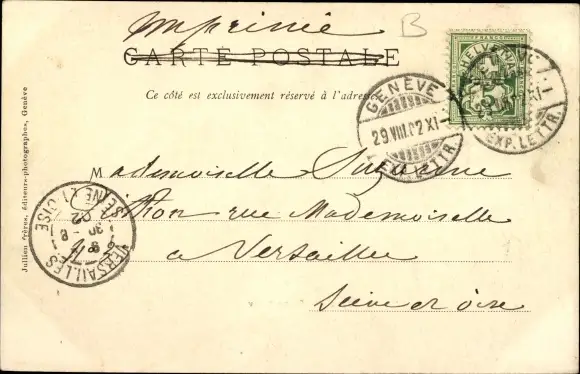 Imprimé
CARTE POSTALE
B
HELVETIA
FRANCO
GENÈVE
29.VIII.02 XI
EXP. LETTR.
XI
EXP. LETTR.
Ce côté est exclusivement réservé à l'adresse
Jullien frères, éditeurs-photographes, Genève
Mademoiselle Suzanne
rue Mademoiselle
a Versailles
Seine et Oise
VERSAILLES
SEINE ET OISE
30 - 8
02